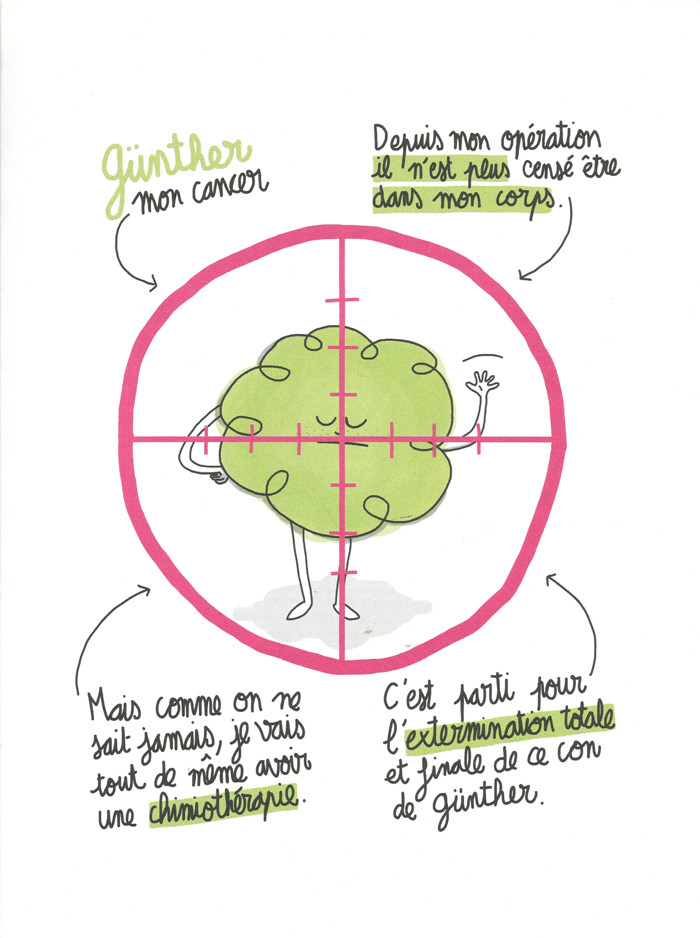 Günther
mon cancer
Depuis mon opération
il n'est plus censé être
dans mon corps.
Mais comme on ne
sait jamais, je vais
tout de même avoir
une chimiothérapie.
C'est parti pour
l'extermination totale
et finale de ce con
de günther.